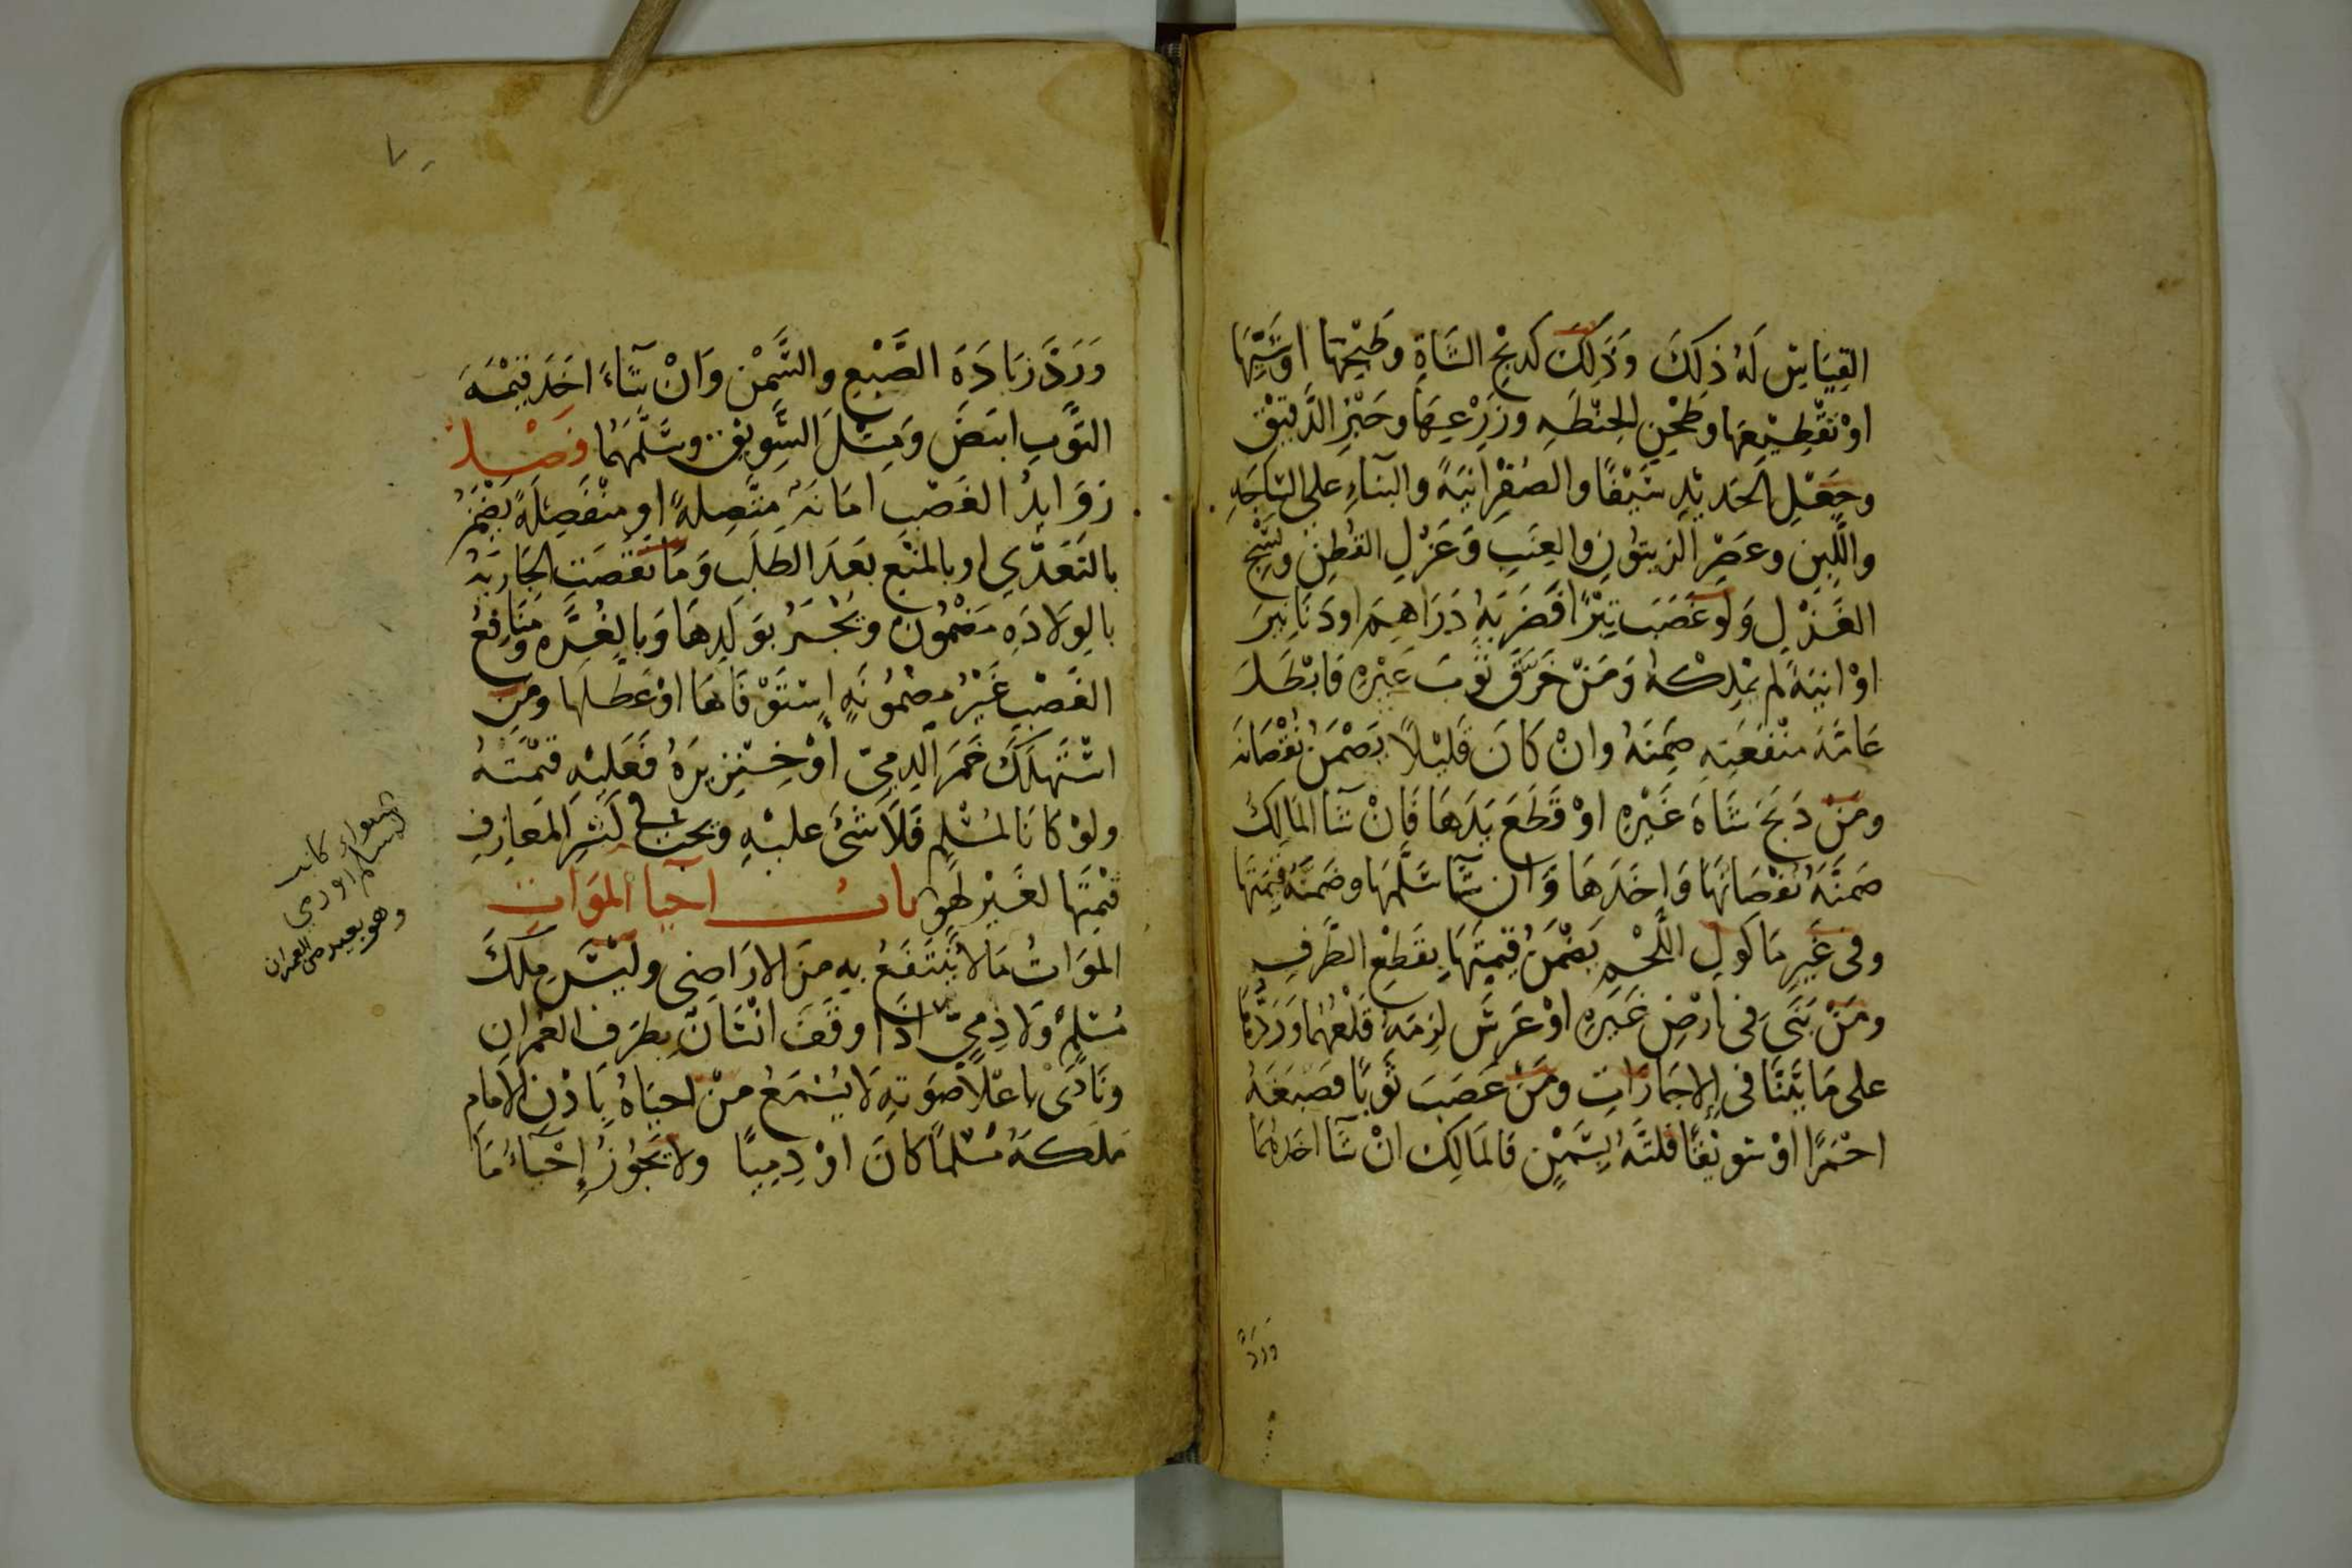 القِيَاسِ لَهُ ذلِكَ وَذَلِكَ كَذَبْحِ الشَّاةِ وَطَبْخِهَا اوْ شَيِّهَا
اوْ تقْطِيْعِهَا وطَحْنِ الحِنْطَهِ وزَرْعِهَا وخَبْزِ الدَّقِيْقِ
وجَعْلِ الحَدِيْدِ سَيْفًا والصُفْرِ انِيَةً والبنَآءِ على السَّاجَهِ
واللَّبِنِ وعَصْرِ الزيتوُنِ والعِنَبِ وَغَزْلِ القُطنِ ونَسْجِ
الغَزْلِ وَلَو غَصَبَ تِبْرًا فَضَرَبَهُ دَرَاهِمَ اودَنَانِيرَ
اوْ انِيَةً لم يَمْلِكْهُ وَمَنْ خَرَّقَ ثَوْبَ غَيْرِهِ فَابْطَلَ
عَامَّةَ منْفَعَتِهِ ضَمِنَهُ وانْ كَانَ قَلِيْلاً يَضْمَنُ نُقْصَانَه
ومَنْ ذبَحَ شَاةَ غَيْرِهِ اوْ قَطَعَ يَدَهَا فَانْ شَآ المَالِكُ
ضَمنَّهُ نُقْصَانَهَا وَاخَذَهَا وَان شَآ سَلَّمَهَا وضَمنَّهُ قِيمَتَهَا
وفى غَيرِ مَاكُولِ اللَّحْمِ يَضْمَنُ قِيْمَتَهَا بِقَطْعِ الطَّرفِ
ومَنْ بَنَى فى ارْضِ غَيرِهِ اوْ غَرَسَ لزِمَهُ قَلْعُهُمَا وَرَدُّهَا
على مَا بَيَّنَّا فى الاجَارَاتِ ومَنْ غصَبَ ثَوبًا فصَبَغَهُ
احْمَرًا اوْ سَوِيْقًا فلتَّهُ بِسَمْنٍ فالمَالِك انْ شَآ اخَذَهُمَا
وَرَدَّ
وَرَدَّ زيَادَةَ الصَّبْغِ والسَّمْنِ وَانْ شَآءَ اخَذَ قِيْمَةَ
الثَوْبِ ابيَضَ وَمِثْلَ السَّوِيْقِ وسَلَّمَهُمَا فَصْلٌ
زَوَايِدُ الغَصْبِ امَانَةٌ متَّصِلةً او منْفَصِلَةً يَضْمَنُ
بالتَعَدِّي او بالمنْعِ بَعَدَ الطَلَبِ وَمَا نَقَصَتِ الجَارِيَةُ
بالوِلادَهِ مَضْمُونٌ ويَجْبَرُ بوَلَدِهَا وَبالغُرَّهِ ومَنَافِعُ
الغَصْبِ غَيْرُ مضْمُونَةٍ إسْتَوْفَاهَا اوْ عَطلَها ومَنِ
اسْتَهلَكَ خَمْرَ الذمِيّ أوْ خِنْزِيرَهُ فَعَلَيْهِ قيْمَتُهُ
ولوْ كانَا لمُسْلِمٍ فَلاَ شَئَ عليْهِ ويجبُ فى كَسْرِ المَعازِفِ
قيْمَتُهَا لغَيْرِ لَهْوٍ بابُ احيَآ الموَاتِ
الموَاتُ مَا لا يُنْتَفَعُ بِهِ منَ الارَاضِى وليْسَ مِلكَ
مُسْلِمٍ وَلا ذِمِيٍّ اذَا وقَفَ انْسَانٌ بطرَفِ العُمْرانِ
ونَادَى باعْلاَ صَوتِهِ لا يُسْمَعُ مَنْ احيَاهُ بِاذْنِ الامَامِ
مَلَكَهُ مُسْلماً كَانَ اوْ ذِمِيًا ولا يَجُوزُ إحْيَآءُ مَا
سواء كان
المسلم اوذمي
وهو بعيد من العمران